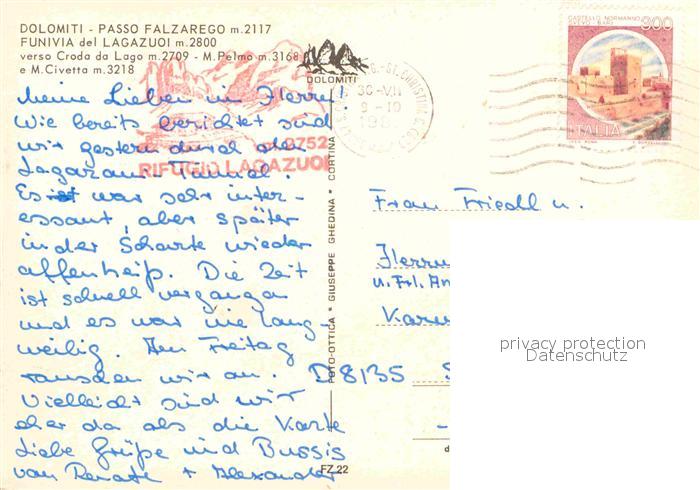 DOLOMITI - PASSO FALZAREGO m. 2117
FUNIVIA del LAGAZUOI m. 2800
verso Croda da Lago m. 2709 - M. Pelmo m. 3168
e M. Civetta m. 3218
DOLOMITI
2752
RIFUGIO LAGAZUOI
Meine Lieben in Herrn
Wie bereits berichtet sind
wir gestern durch den
Lagazuoi Tunnel.
Es war sehr inter-
essant, aber später
in der Scharte wieder
affenheiß. Die Zeit
ist schnell vergangen
und es war nie lang-
weilig. Am Freitag
rauschen wir an.
Vielleicht sind wir
eher da als die Karte
Liebe Grüße und Bussis
von Renate + Alexander
FOTO-OTTICA • GIUSEPPE GHEDINA • CORTINA
FZ 22
30-VII
9-10
CASTELLO NORMANNO
SVEVO BARI
300
ITALIA
Frau Friedl u.
u. Frl. An
D 8135
privacy protection
Datenschutz